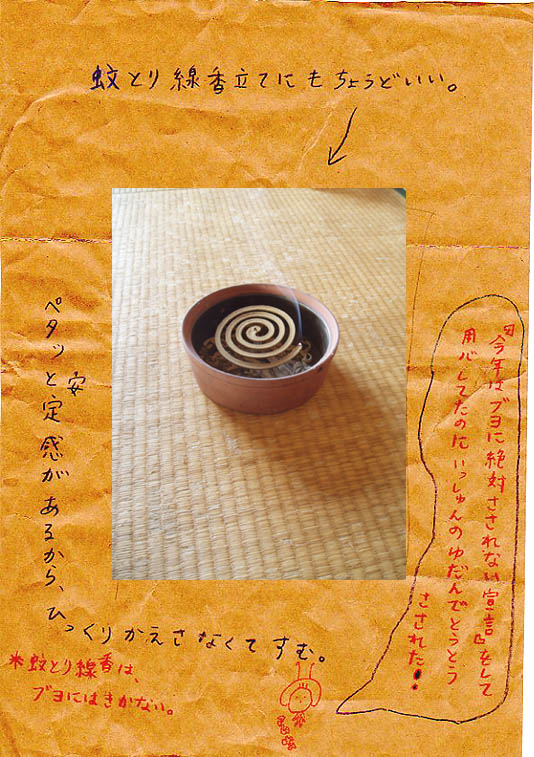 蚊とり線香立てにもちょうどいい。
ペタッと安定感があるから、ひっくりかえさなくてすむ。
『今年はブヨに絶対さされない宣言』をして
用心してたのにいっしゅんのゆだんでとうとう
さされた！
*蚊とり線香は、
ブヨにはきかない。